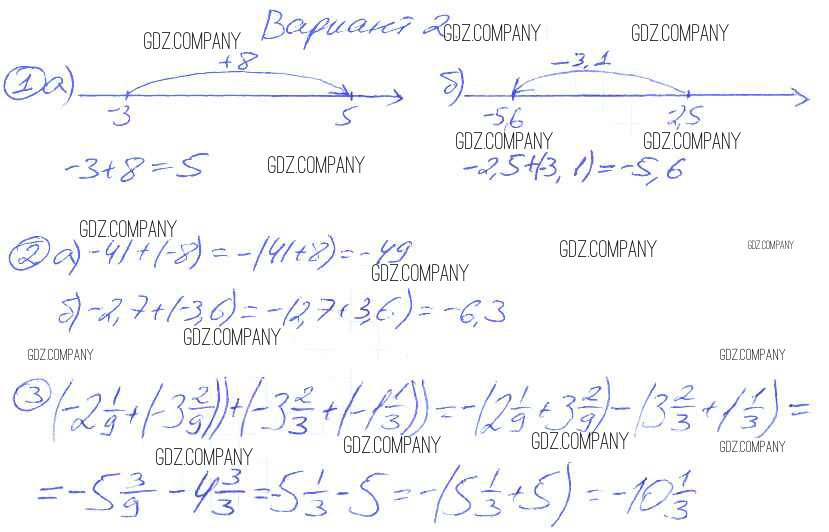 Вариант 2
GDZ.COMPANY GDZ.COMPANY GDZ.COMPANY
+8 -3,1
1 а) б)
-3 5 -5,6 -2,5
GDZ.COMPANY GDZ.COMPANY
-3+8=5 GDZ.COMPANY -2,5+(-3,1)=-5,6
GDZ.COMPANY
2 а) -41+(-8)=-(41+8)=-49 GDZ.COMPANY GDZ.COMPANY
GDZ.COMPANY
б) -2,7+(-3,6)=-(2,7+3,6)=-6,3
GDZ.COMPANY
GDZ.COMPANY GDZ.COMPANY
3 (-2 1/9+(-3 2/9))+(-3 2/3+(-1 1/3))=-(2 1/9+3 2/9)-(3 2/3+1 1/3)=
GDZ.COMPANY GDZ.COMPANY GDZ.COMPANY GDZ.COMPANY
=-5 3/9-4 3/3=-5 1/3-5=-(5 1/3+5)=-10 1/3